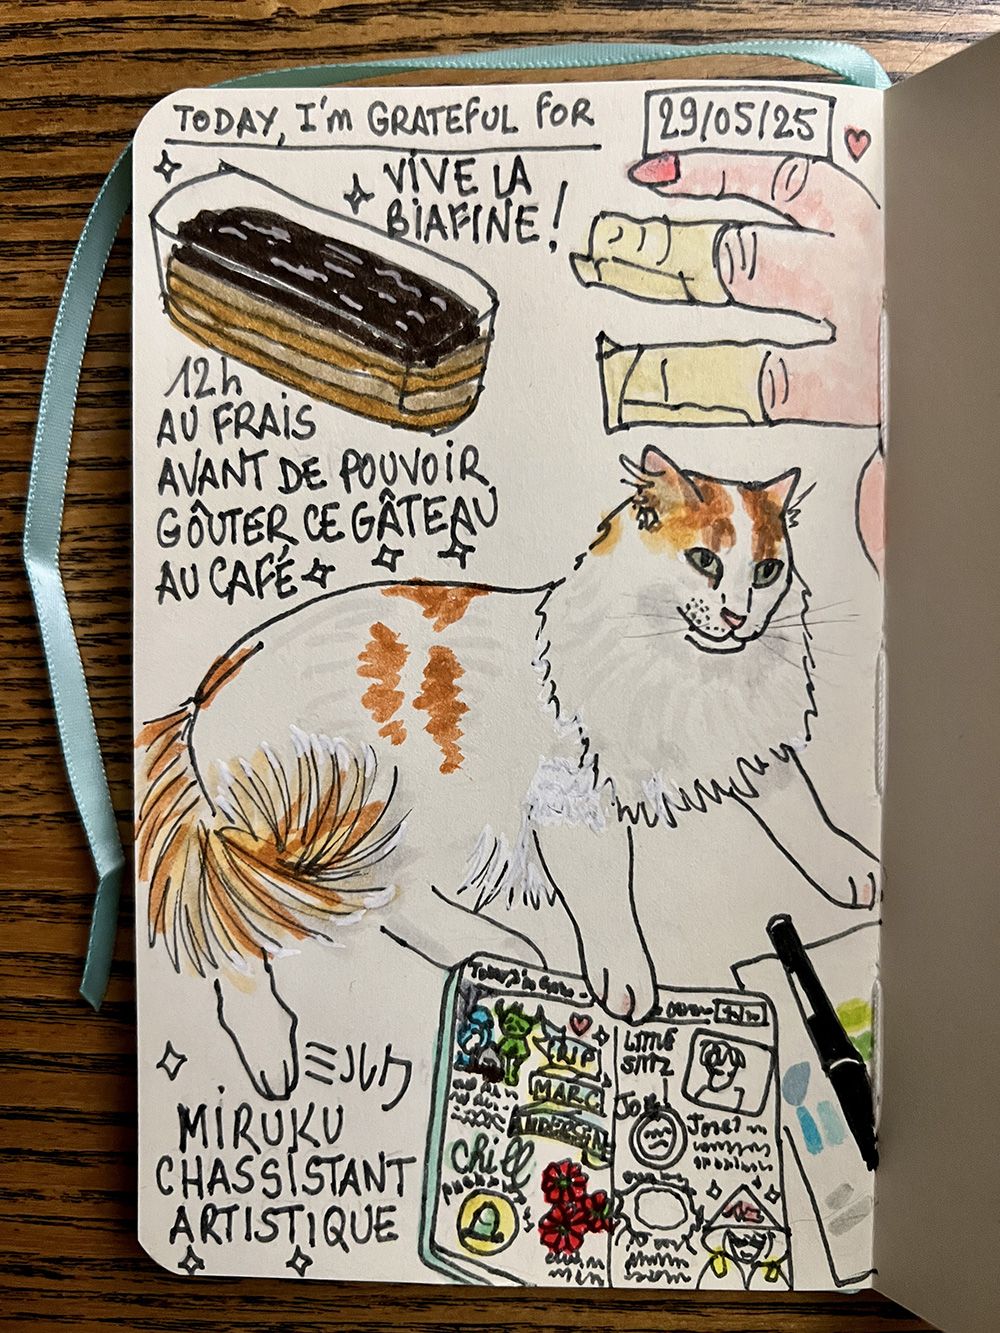 TODAY, I'M GRATEFUL FOR
29/05/25
VIVE LA
BIAFINE!
12h
AU FRAIS
AVANT DE POUVOIR
GOÛTER CE GÂTEAU
AU CAFÉ
ミルク
MIRUKU
CHASSISTANT
ARTISTIQUE
FLIP
MARC
ANDERSEN
Chill
LITTLE